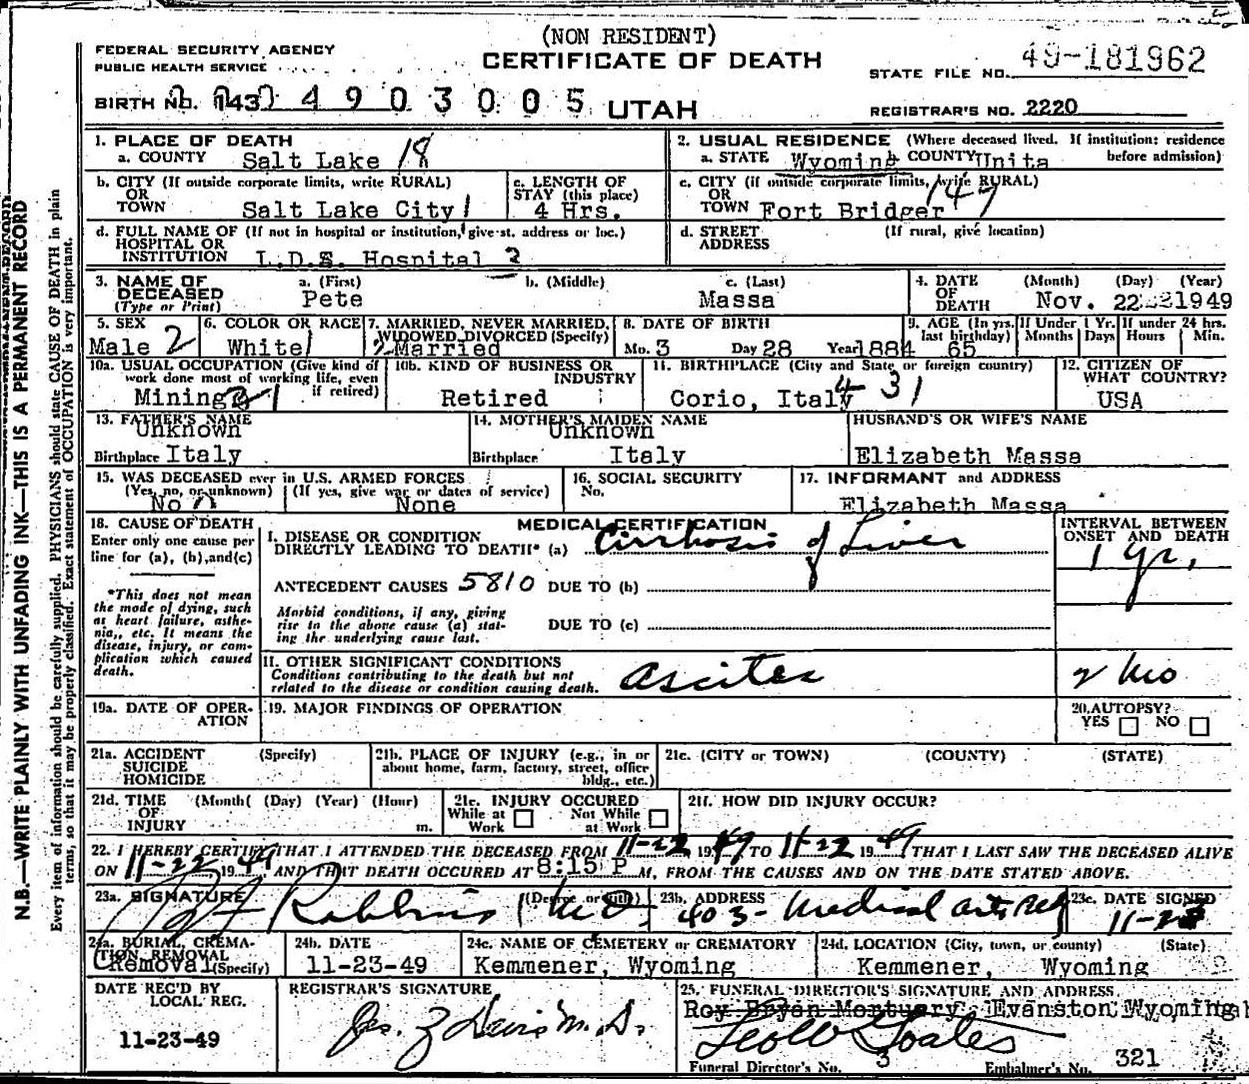 (NON RESIDENT)
FEDERAL SECURITY AGENCY
PUBLIC HEALTH SERVICE
CERTIFICATE OF DEATH
STATE FILE NO. 49-181962
BIRTH NO. 143 4 9 0 3 0 0 5 UTAH
REGISTRAR'S NO. 2220
N.B.—WRITE PLAINLY WITH UNFADING INK—THIS IS A PERMANENT RECORD
Every item of information should be carefully supplied. PHYSICIANS should state CAUSE OF DEATH in plain
terms, so that it may be properly classified. Exact statement of OCCUPATION is very important.
1. PLACE OF DEATH
a. COUNTY Salt Lake 18
2. USUAL RESIDENCE (Where deceased lived. If institution: residence
before admission)
a. STATE Wyoming COUNTY Unita
b. CITY (If outside corporate limits, write RURAL)
OR
TOWN Salt Lake City 1
c. LENGTH OF
STAY (this place)
4 Hrs.
c. CITY (if outside corporate limits, write RURAL)
OR
TOWN Fort Bridger 147
d. FULL NAME OF (If not in hospital or institution, give st. address or loc.)
HOSPITAL OR
INSTITUTION L.D.S. Hospital 2
d. STREET (If rural, give location)
ADDRESS
3. NAME OF
DECEASED
(Type or Print)
a. (First)
Pete
b. (Middle)
c. (Last)
Massa
4. DATE
OF
DEATH
(Month) (Day) (Year)
Nov. 22 1949
5. SEX
Male 2
6. COLOR OR RACE
White 1
7. MARRIED, NEVER MARRIED,
WIDOWED, DIVORCED (Specify)
2 Married
8. DATE OF BIRTH
Mo. 3 Day 28 Year 1884
9. AGE (In yrs.
last birthday)
65
If Under 1 Yr.
Months Days
If under 24 hrs.
Hours Min.
10a. USUAL OCCUPATION (Give kind of
work done most of working life, even
if retired)
Mining
10b. KIND OF BUSINESS OR
INDUSTRY
Retired
11. BIRTHPLACE (City and State or foreign country)
Corio, Italy 431
12. CITIZEN OF
WHAT COUNTRY?
USA
13. FATHER'S NAME
Unknown
Birthplace Italy
14. MOTHER'S MAIDEN NAME
Unknown
Birthplace Italy
HUSBAND'S OR WIFE'S NAME
Elizabeth Massa
15. WAS DECEASED ever in U.S. ARMED FORCES
(Yes, no, or unknown) (If yes, give war or dates of service)
No 0 None
16. SOCIAL SECURITY
No.
17. INFORMANT and ADDRESS
Elizabeth Massa
18. CAUSE OF DEATH
Enter only one cause per
line for (a), (b), and (c)
*This does not mean
the mode of dying, such
as heart failure, asthe-
nia,, etc. It means the
disease, injury, or com-
plication which caused
death.
MEDICAL CERTIFICATION
I. DISEASE OR CONDITION
DIRECTLY LEADING TO DEATH* (a) Cirrhosis of Liver
INTERVAL BETWEEN
ONSET AND DEATH
1 yr.
ANTECEDENT CAUSES 5810 DUE TO (b)
Morbid conditions, if any, giving
rise to the above cause (a) stat-
ing the underlying cause last.
DUE TO (c)
II. OTHER SIGNIFICANT CONDITIONS
Conditions contributing to the death but not
related to the disease or condition causing death.
Ascites
2 Mo
19a. DATE OF OPER-
ATION
19. MAJOR FINDINGS OF OPERATION
20. AUTOPSY?
YES NO
21a. ACCIDENT (Specify)
SUICIDE
HOMICIDE
21b. PLACE OF INJURY (e.g., in or
about home, farm, factory, street, office
bldg., etc.)
21c. (CITY or TOWN) (COUNTY) (STATE)
21d. TIME (Month( (Day) (Year) (Hour)
OF
INJURY m.
21e. INJURY OCCURED
While at Work
Not While at Work
21f. HOW DID INJURY OCCUR?
22. I HEREBY CERTIFY THAT I ATTENDED THE DECEASED FROM 11-22 1949 TO 11-22 1949 THAT I LAST SAW THE DECEASED ALIVE
ON 11-22 1949, AND THAT DEATH OCCURED AT 8:15 P M, FROM THE CAUSES AND ON THE DATE STATED ABOVE.
23a. SIGNATURE (Degree or title)
Robbins MD
23b. ADDRESS
403 - Medical Arts Bldg
23c. DATE SIGNED
24a. BURIAL, CREMA-
TION, REMOVAL
Removal (Specify)
24b. DATE
11-23-49
24c. NAME OF CEMETERY or CREMATORY
Kemmener, Wyoming
24d. LOCATION (City, town, or county) (State)
Kemmener, Wyoming
DATE REC'D BY
LOCAL REG.
11-23-49
REGISTRAR'S SIGNATURE
Jas. Z Davis M.D.
25. FUNERAL DIRECTOR'S SIGNATURE AND ADDRESS
Roy Bryan Mortuary, Evanston Wyoming
Funeral Director's No. 3 Embalmer's No. 321